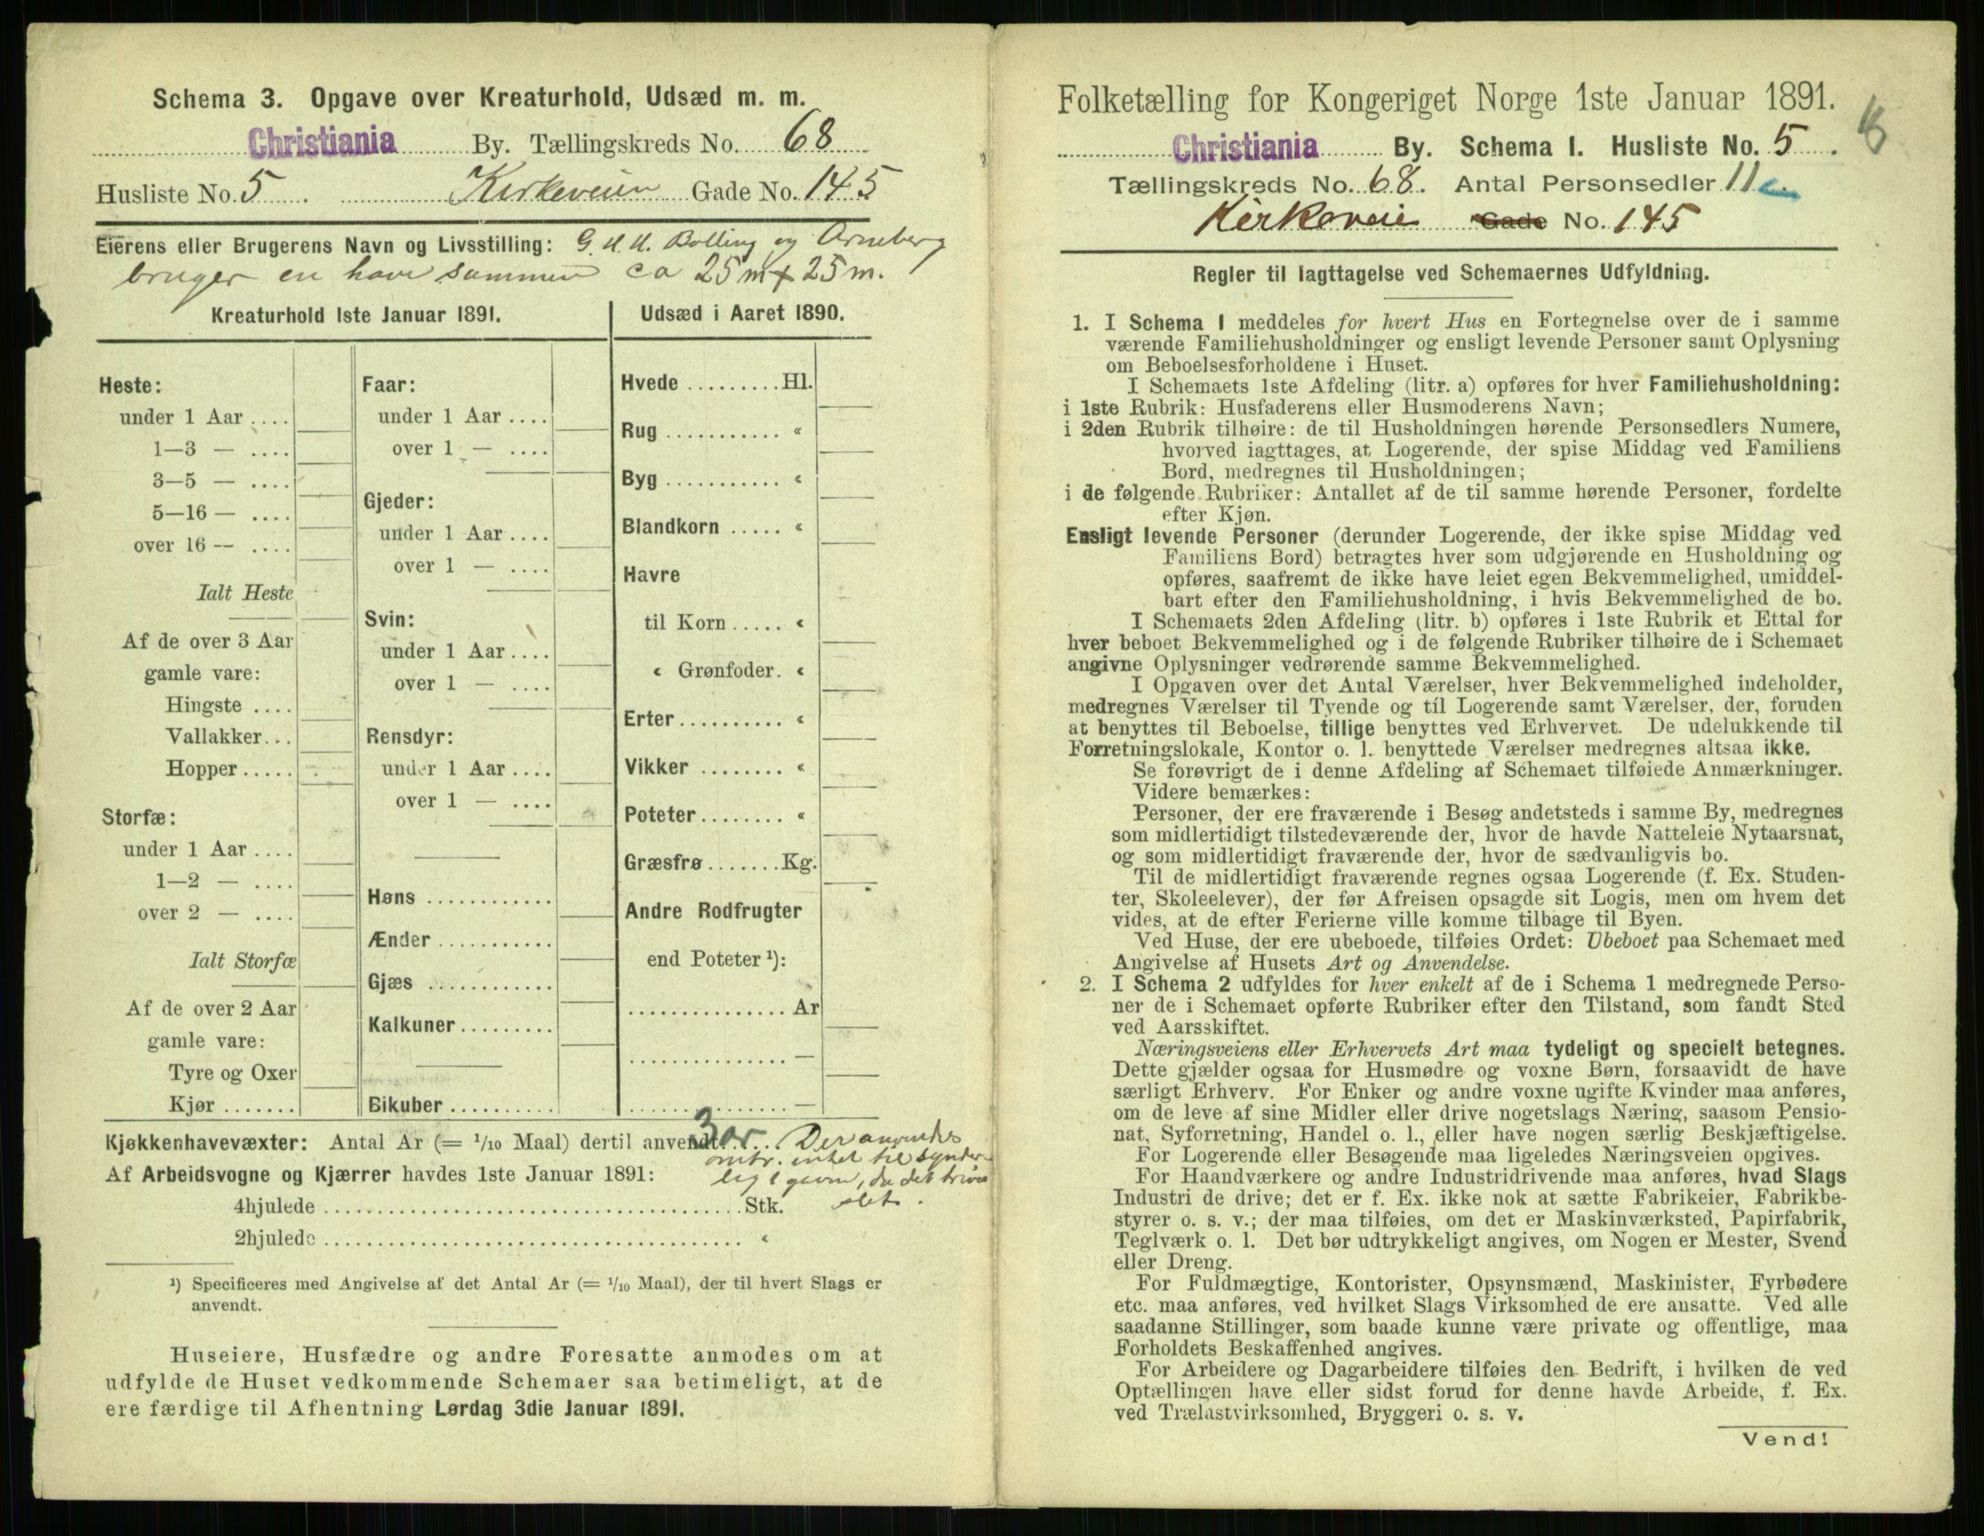 Schema 3. Opgave over Kreaturhold, Udsæd m. m.
Christiania By. Tællingskreds No. 68
Husliste No. 5 Kirkeveien Gade No. 145
Eierens eller Brugerens Navn og Livsstilling: G. H. H. Bolling og Arneberg
bruger en have sammen ca 25 m × 25 m.
Kreaturhold 1ste Januar 1891.
Heste:
under 1 Aar ....
1—3 — ....
3—5 — ....
5—16 — ....
over 16 — ....
Ialt Heste
Af de over 3 Aar
gamle vare:
Hingste ....
Vallakker...
Hopper.....
Storfæ:
under 1 Aar ....
1—2 — ....
over 2 — ....
Ialt Storfæ
Af de over 2 Aar
gamle vare:
Tyre og Oxer
Kjør .......
Faar:
under 1 Aar ....
over 1 — ....
Gjeder:
under 1 Aar ....
over 1 — ....
Svin:
under 1 Aar ....
over 1 — ....
Rensdyr:
under 1 Aar ....
over 1 — ....
Høns ............
Ænder ...........
Gjæs ............
Kalkuner.........
Bikuber..........
Udsæd i Aaret 1890.
Hvede .........Hl.
Rug ........... «
Byg ........... «
Blandkorn ..... «
Havre
til Korn ..... «
« Grønfoder. «
Erter.......... «
Vikker ........ «
Poteter........ «
Græsfrø .......Kg.
Andre Rodfrugter
end Poteter ¹):
...............Ar
............... —
............... —
Kjøkkenhavevæxter: Antal Ar (= 1/10 Maal) dertil anvendt 3 ar. Der anvendes
omtr. intet til synder-
Af Arbeidsvogne og Kjærrer havdes 1ste Januar 1891: lig igavn, da det trives
4hjulede ........................................Stk. slet.
2hjulede ........................................ «
¹) Specificeres med Angivelse af det Antal Ar (= 1/10 Maal), der til hvert Slags er
anvendt.
Huseiere, Husfædre og andre Foresatte anmodes om at
udfylde de Huset vedkommende Schemaer saa betimeligt, at de
ere færdige til Afhentning Lørdag 3die Januar 1891.
Folketælling for Kongeriget Norge 1ste Januar 1891.
Christiania By. Schema 1. Husliste No. 5.
Tællingskreds No. 68. Antal Personsedler 11
Kirkeveie Gade No. 145
Regler til Iagttagelse ved Schemaernes Udfyldning.
1. I Schema 1 meddeles for hvert Hus en Fortegnelse over de i samme
værende Familiehusholdninger og ensligt levende Personer samt Oplysning
om Beboelsesforholdene i Huset.
I Schemaets 1ste Afdeling (litr. a) opføres for hver Familiehusholdning:
i 1ste Rubrik: Husfaderens eller Husmoderens Navn;
i 2den Rubrik tilhøire: de til Husholdningen hørende Personsedlers Numere,
hvorved iagttages, at Logerende, der spise Middag ved Familiens
Bord, medregnes til Husholdningen;
i de følgende Rubriker: Antallet af de til samme hørende Personer, fordelte
efter Kjøn.
Ensligt levende Personer (derunder Logerende, der ikke spise Middag ved
Familiens Bord) betragtes hver som udgjørende en Husholdning og
opføres, saafremt de ikke have leiet egen Bekvemmelighed, umiddel-
bart efter den Familiehusholdning, i hvis Bekvemmelighed de bo.
I Schemaets 2den Afdeling (litr. b) opføres i 1ste Rubrik et Ettal for
hver beboet Bekvemmelighed og i de følgende Rubriker tilhøire de i Schemaet
angivne Oplysninger vedrørende samme Bekvemmelighed.
I Opgaven over det Antal Værelser, hver Bekvemmelighed indeholder,
medregnes Værelser til Tyende og til Logerende samt Værelser, der, foruden
at benyttes til Beboelse, tillige benyttes ved Erhvervet. De udelukkende til
Forretningslokale, Kontor o. l. benyttede Værelser medregnes altsaa ikke.
Se forøvrigt de i denne Afdeling af Schemaet tilføiede Anmærkninger.
Videre bemærkes:
Personer, der ere fraværende i Besøg andetsteds i samme By, medregnes
som midlertidigt tilstedeværende der, hvor de havde Natteleie Nytaarsnat,
og som midlertidigt fraværende der, hvor de sædvanligvis bo.
Til de midlertidigt fraværende regnes ogsaa Logerende (f. Ex. Studen-
ter, Skoleelever), der før Afreisen opsagde sit Logis, men om hvem det
vides, at de efter Ferierne ville komme tilbage til Byen.
Ved Huse, der ere ubeboede, tilføies Ordet: Ubeboet paa Schemaet med
Angivelse af Husets Art og Anvendelse.
2. I Schema 2 udfyldes for hver enkelt af de i Schema 1 medregnede Perso-
ner de i Schemaet opførte Rubriker efter den Tilstand, som fandt Sted
ved Aarsskiftet.
Næringsveiens eller Erhvervets Art maa tydeligt og specielt betegnes.
Dette gjælder ogsaa for Husmødre og voxne Børn, forsaavidt de have
særligt Erhverv. For Enker og andre voxne ugifte Kvinder maa anføres,
om de leve af sine Midler eller drive nogetslags Næring, saasom Pensio-
nat, Syforretning, Handel o. l., eller have nogen særlig Beskjæftigelse.
For Logerende eller Besøgende maa ligeledes Næringsveien opgives.
For Haandværkere og andre Industridrivende maa anføres, hvad Slags
Industri de drive; det er f. Ex. ikke nok at sætte Fabrikeier, Fabrikbe-
styrer o. s. v.; der maa tilføies, om det er Maskinværksted, Papirfabrik,
Teglværk o. l. Det bør udtrykkeligt angives, om Nogen er Mester, Svend
eller Dreng.
For Fuldmægtige, Kontorister, Opsynsmænd, Maskinister, Fyrbødere
etc. maa anføres, ved hvilket Slags Virksomhed de ere ansatte. Ved alle
saadanne Stillinger, som baade kunne være private og offentlige, maa
Forholdets Beskaffenhed angives.
For Arbeidere og Dagarbeidere tilføies den Bedrift, i hvilken de ved
Optællingen have eller sidst forud for denne havde Arbeide, f. Ex.
ved Trælastvirksomhed, Bryggeri o. s. v.
Vend!